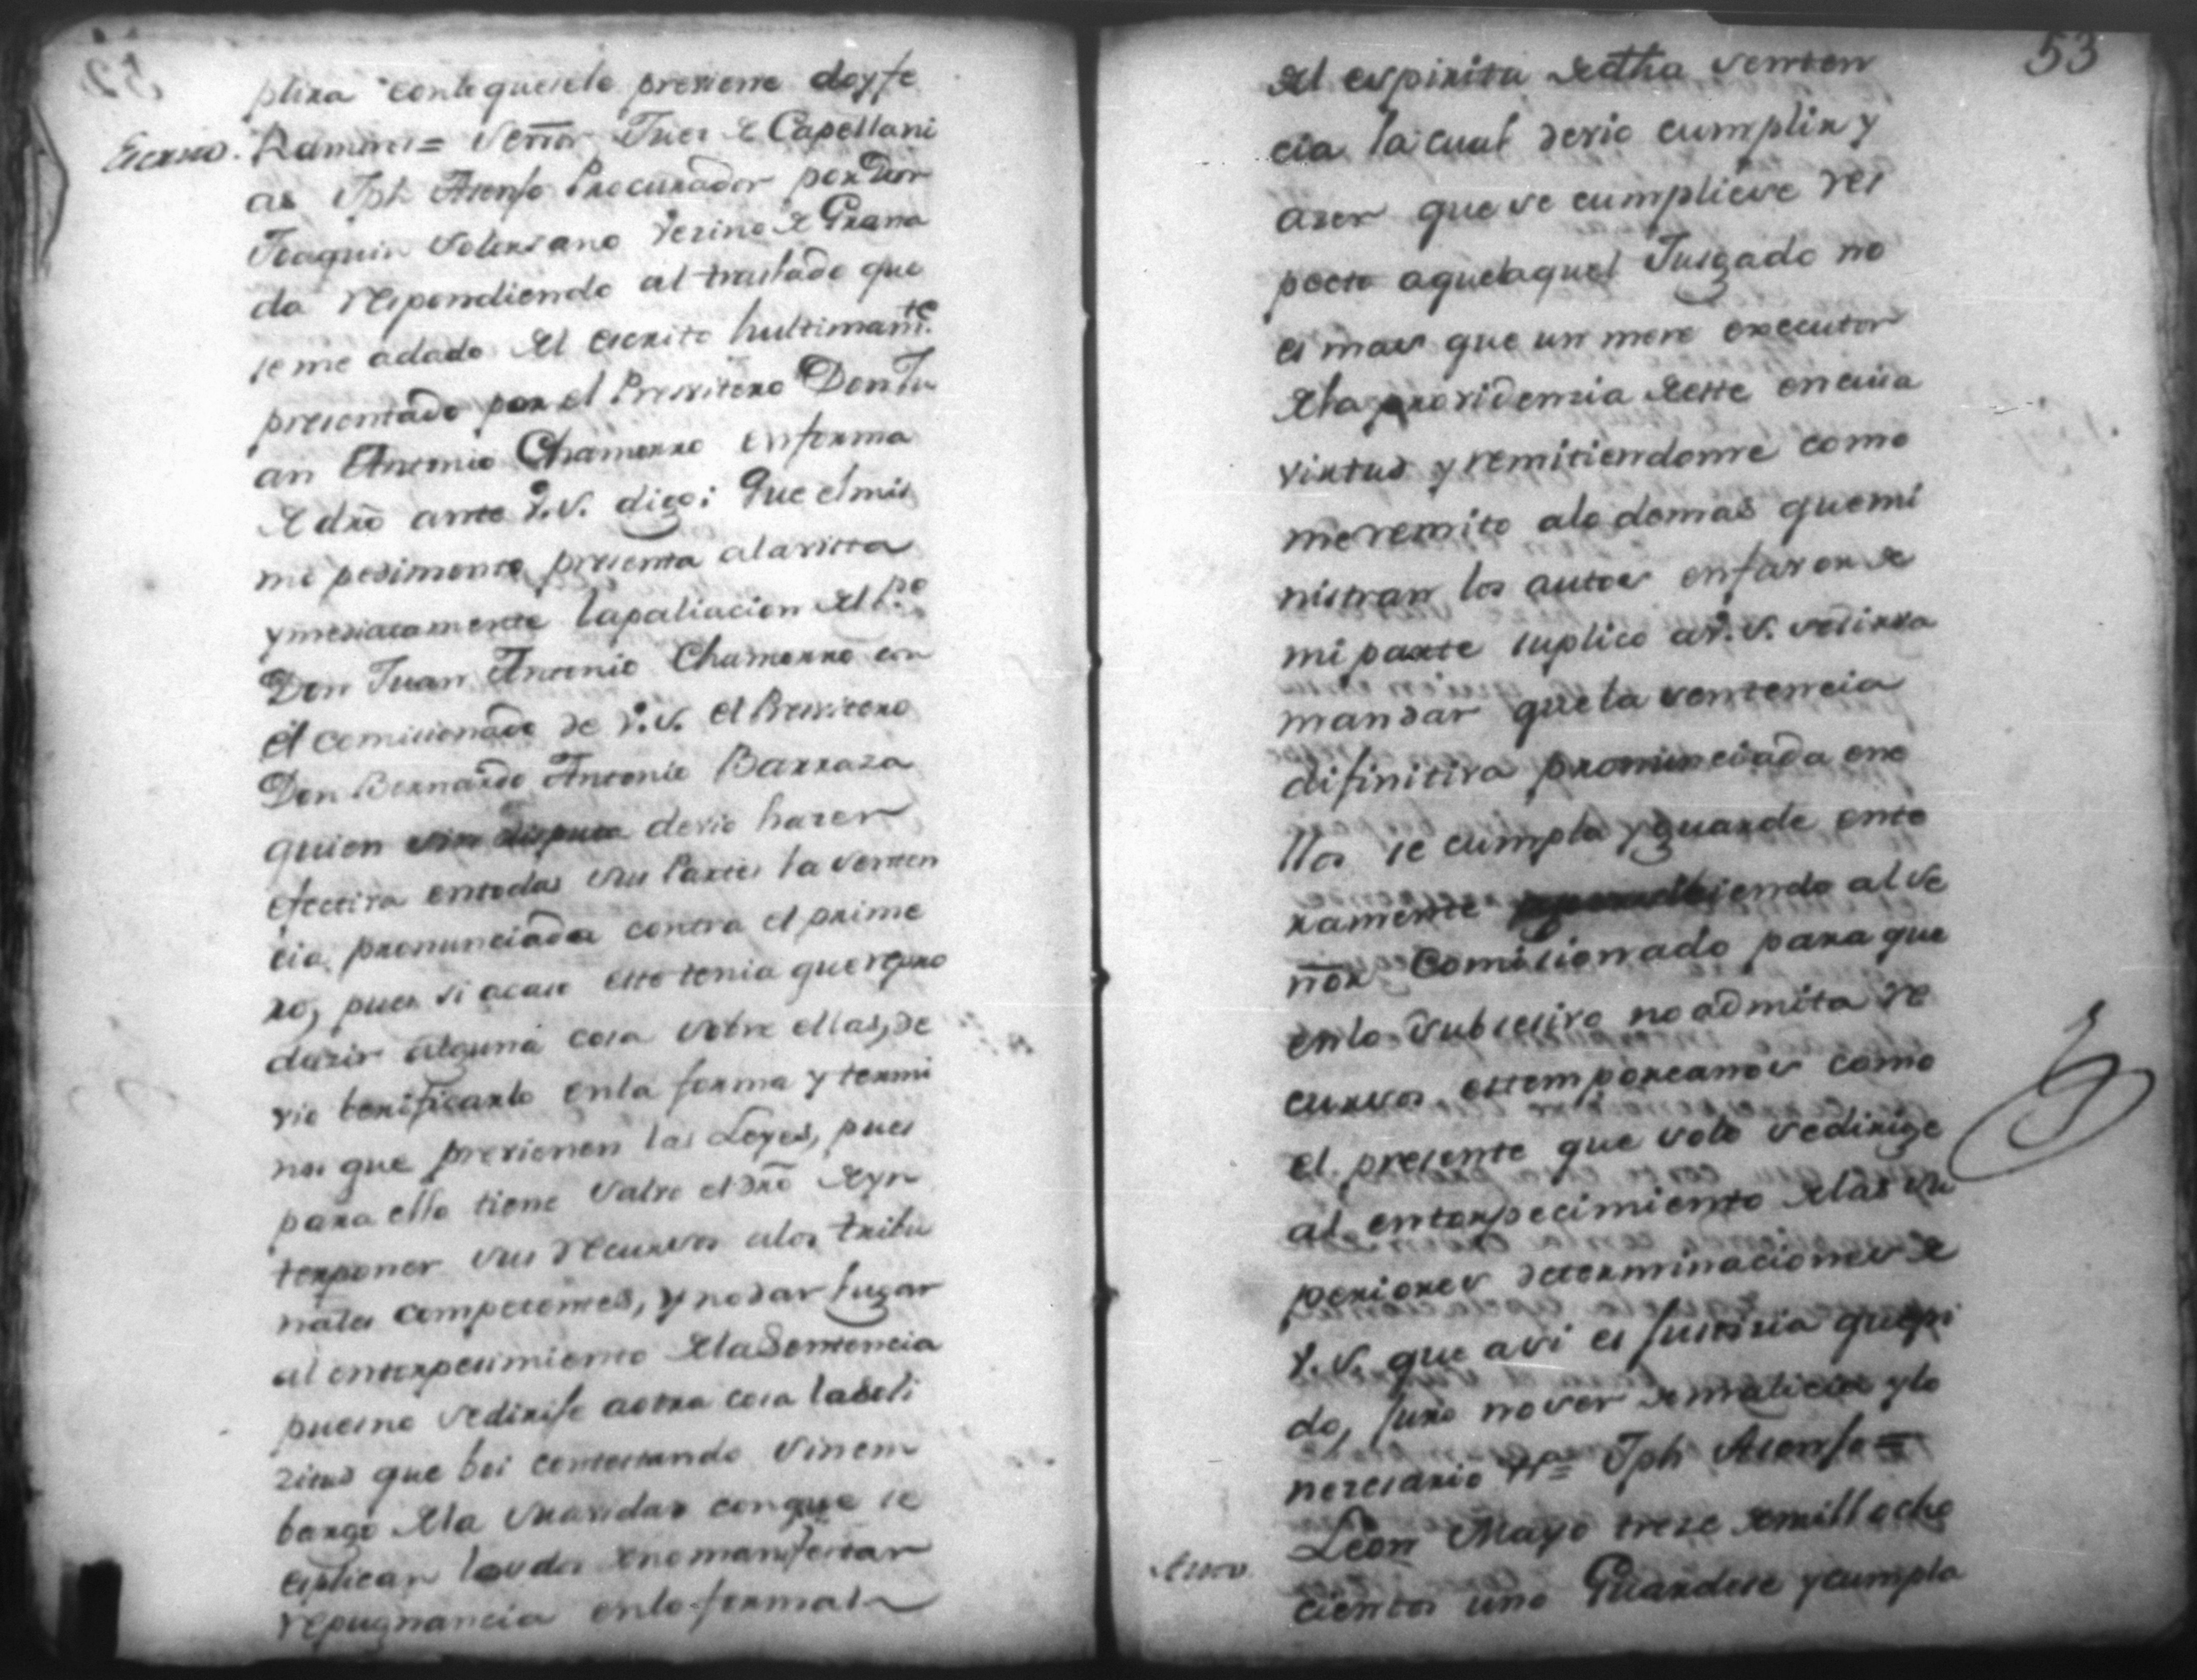 plira conlo que se le previene doy fe
Escrito. Ramires = Señor Jues de Capellani
as Jph Asenso Procurador por Don
Joaquin Solorsano Vezino de Grana
da respondiendo al traslado que
se me a dado del escrito hultimamte.
presentado por el Presvitero Don Ju
an Antonio Chamorro en forma
de dro ante V.S. digo: Que el mis
mo pedimento presenta ala vista
ymediatamente la paliacion del P.e
Don Juan Antonio Chamorro con
el comicionado de V.S. el Presvitero
Don Bernardo Antonio Barraza
quien sin disputa devio hazer
efectiva en todas sus Partes la senten
cia pronunciada contra el prime
ro, pues si acaso este tenia que repro
duzir alguna cosa sobre ellas, de
vio berificarlo en la forma y termi
nos que previenen las Leyes, pues
para ello tiene salvo el dro de yn
terponer sus recursos alos tribu
nales competentes, y no dar lugar
al entorpesimiento dela Sentencia
pues no se dirije a otra cosa la soli
zitud que boi contestando sin em
bargo dela suavidad con que se
esplican los dos de no manifestar
repugnancia en lo formal
53
del espiritu de dha senten
cia la cual devio cumplir y
aser que se cumpliese res
pecto a que aquel Jusgado no
es mas que un mero executor
dela providencia deste en cuia
virtud y remitiendome como
me remito alo demas que mi
nistran los autos en favor de
mi parte suplico a V.S. se sirva
mandar que la sentencia
difinitiva pronunciada en e
llos se cumpla y guarde ente
ramente iendo al Se
ñor Comisionado para que
en lo subsesivo no admita re
cursos estemporeanos como
el presente que solo se dirige
al entorpecimiento delas su
periores determinaciones de
V.S. que asi es justicia que pi
do, juro no ser de malicia y lo
nezesario Jph Asenso =
Auto Leon Mayo treze de mill ocho
cientos uno Guardese y cumpla